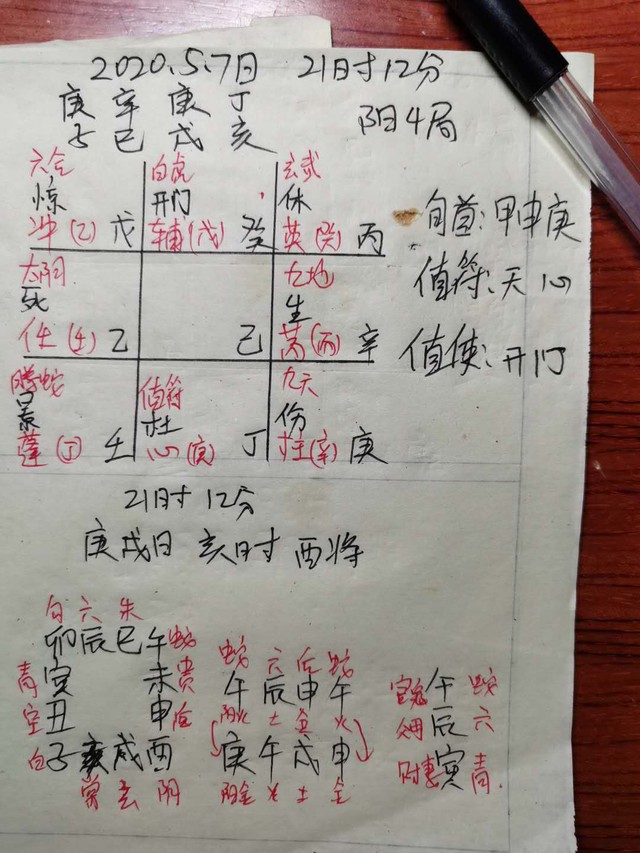 2020.5.7日 21时12分
庚 辛 庚 丁
子 巳 戌 亥
阳4局
六合 白虎 玄武
惊 开门 休
冲(乙)戊 辅(戊)癸 英(癸)丙
旬首:甲申庚
值符:天心
值使:开门
太阴 九地
死 生
任(壬)乙 己 芮(丙)辛
腾蛇 值符 九天
景 杜 伤
蓬(丁)壬 心(庚)丁 柱(辛)庚
21时12分
庚戌日 亥时 酉将
勾 六 朱
卯 辰 巳 午 蛇
青 寅 未 贵
空 丑 申
白 子 亥 戌 酉
常 玄 阴
蛇 六 后 蛇
午 辰 申 午
土 金 火
庚 午 戌 申
阳金 火 土 金
官鬼 午 蛇
父母 辰 六
财妻 寅 青